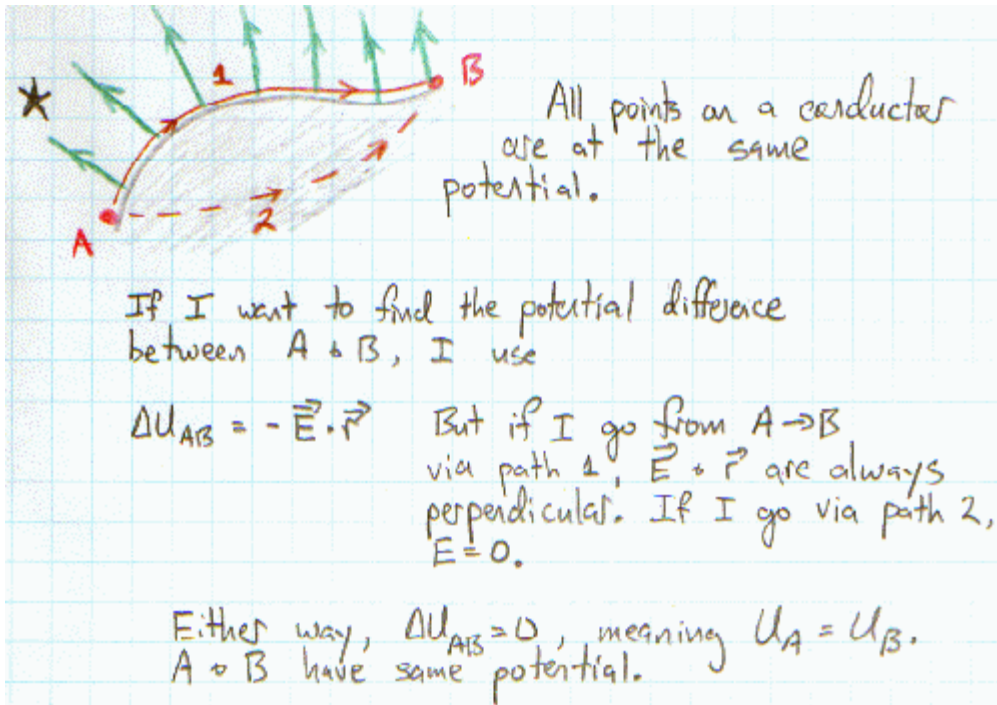 1
B
A
2
All points on a conductor
are at the same
potential.
If I want to find the potential difference
between A & B, I use
ΔU_AB = - E⃗ · r⃗
But if I go from A → B
via path 1, E⃗ & r⃗ are always
perpendicular. If I go via path 2,
E = 0.
Either way, ΔU_AB = 0, meaning U_A = U_B.
A & B have same potential.